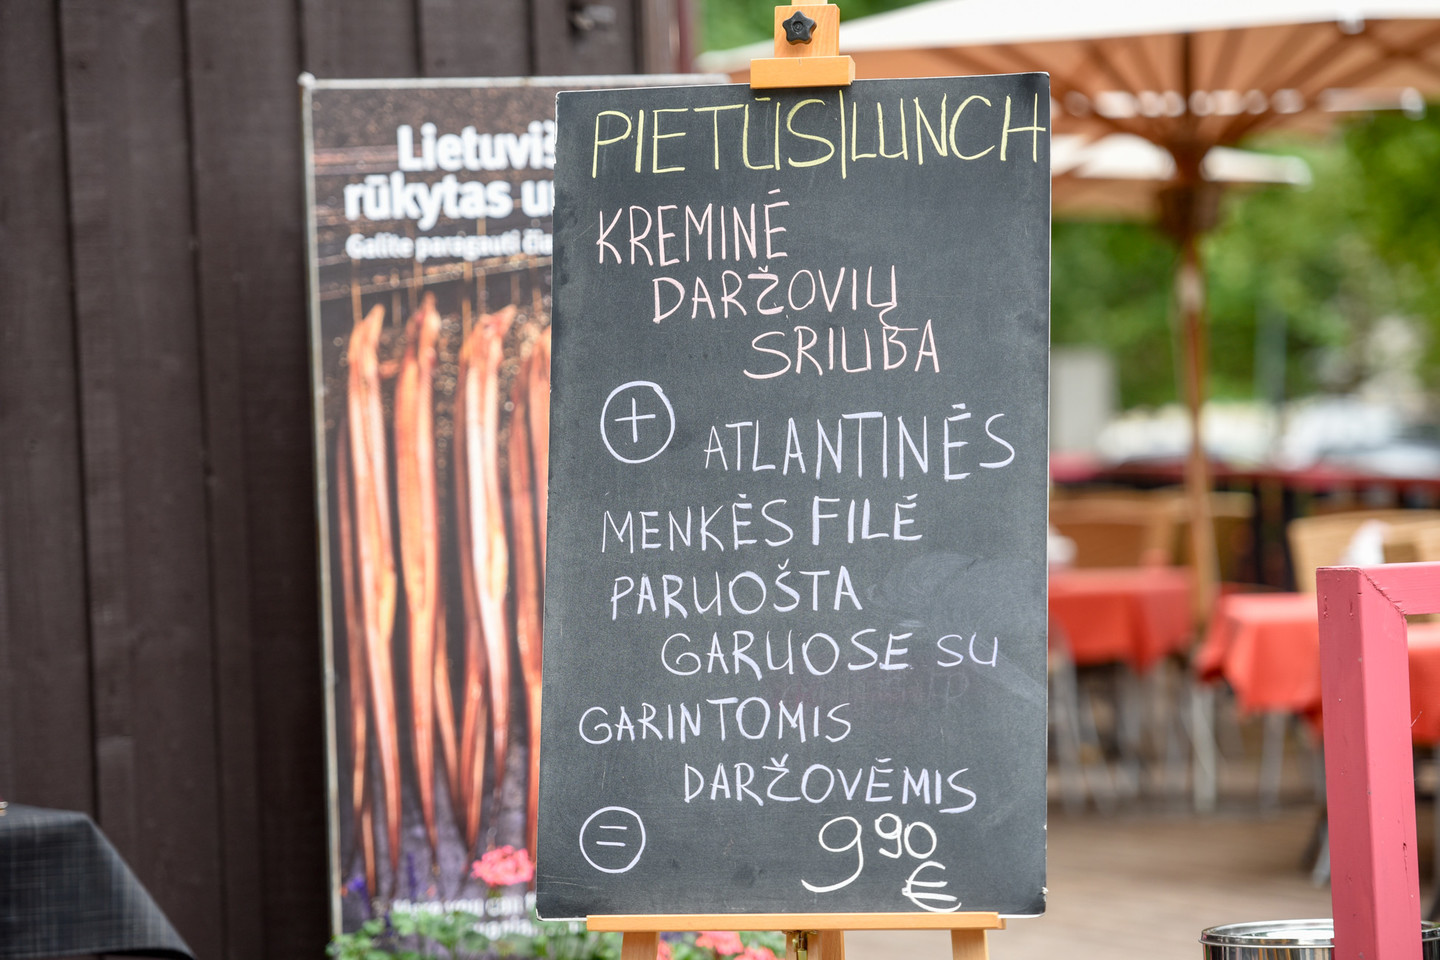 PIETŪS|LUNCH
KREMINĖ
DARŽOVIŲ
SRIUBA
+ ATLANTINĖS
MENKĖS FILĖ
PARUOŠTA
GARUOSE SU
GARINTOMIS
DARŽOVĖMIS
= 9 90
€
Lietuviš
rūkytas u
Galite paragauti čia